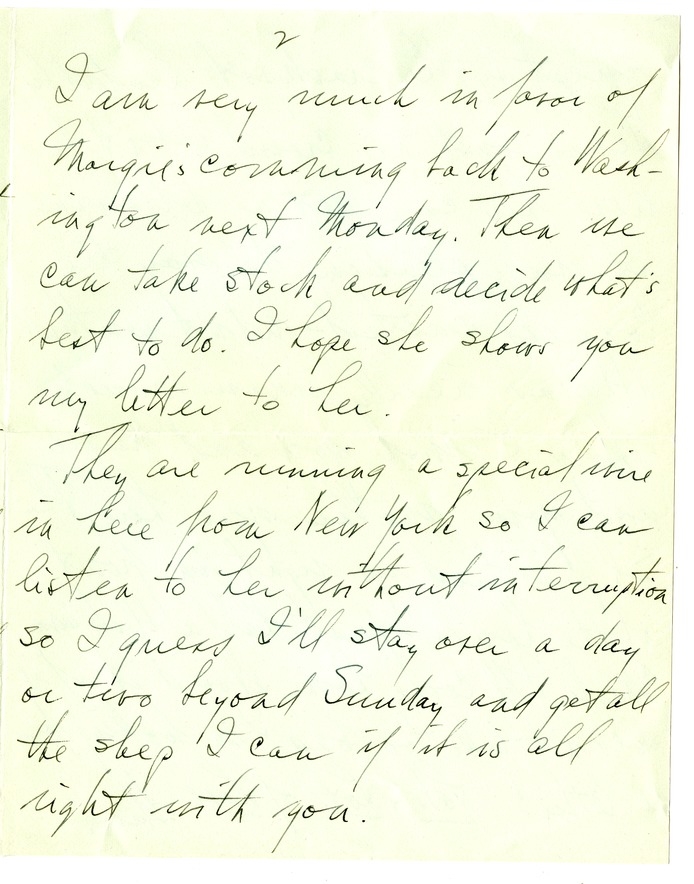 2
I am very much in favor of
Margie's comming back to Wash-
ington next Monday. Then we
can take stock and decide what's
best to do. I hope she shows you
my letter to her.
They are running a special wire
in here from New York so I can
listen to her without interruption
so I guess I'll stay over a day
or two beyond Sunday and get all
the sleep I can if it is all
right with you.